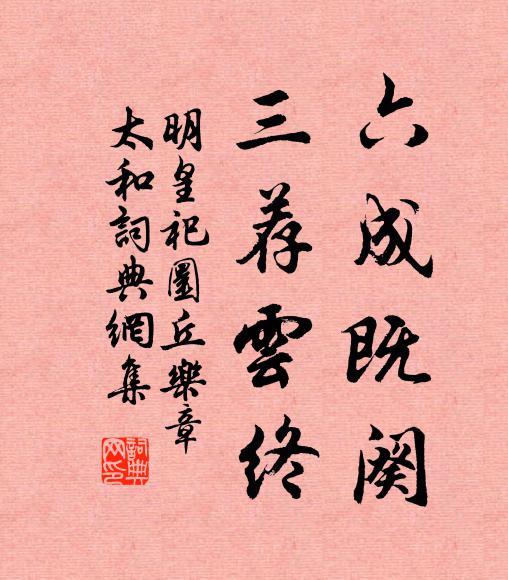 六成既阕
三荐雲终
明皇祀圜丘樂章
太和詞典網集
詞典網印